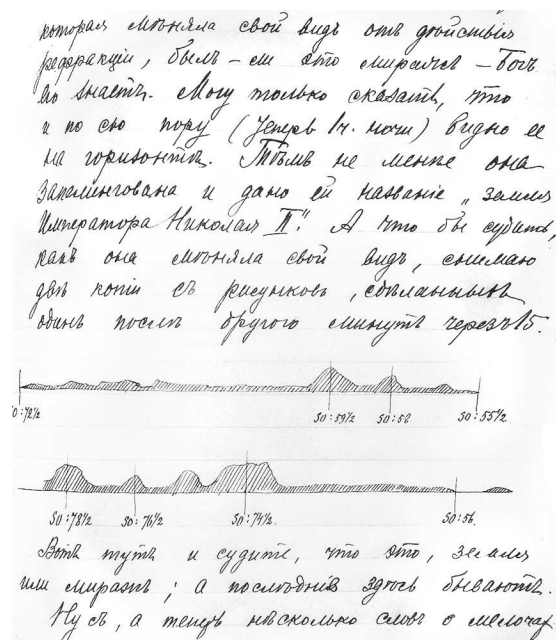 которая мѣняла свой видъ отъ дѣйствія
рефракціи, былъ-ли это миражъ - Богъ
его знаетъ. Могу только сказать, что
и по сю пору (теперь 1ч. ночи) видно ее
на горизонтѣ. Тѣмъ не менѣе она
запеленгована и дано ей названіе „Земля
Императора Николая II". А что бы судить,
какъ она мѣняла свой видъ, снимаю
двѣ копіи съ рисунковъ, сдѣланныхъ
одинъ послѣ другого минутъ черезъ 15.
SO:72½ SO:59½ SO:58 SO:55½
SO:78½ SO:76½ SO:74½ SO:56.
Вотъ тутъ и судите, что это, земля
или миражъ; а послѣдніе здѣсь бываютъ.
Ну съ, а теперь нѣсколько словъ о мелочах